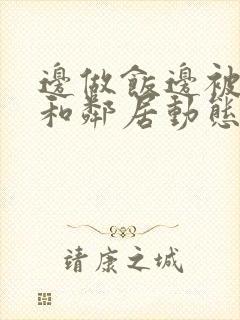 邊做飯邊被
和鄰居動態
靖康之城